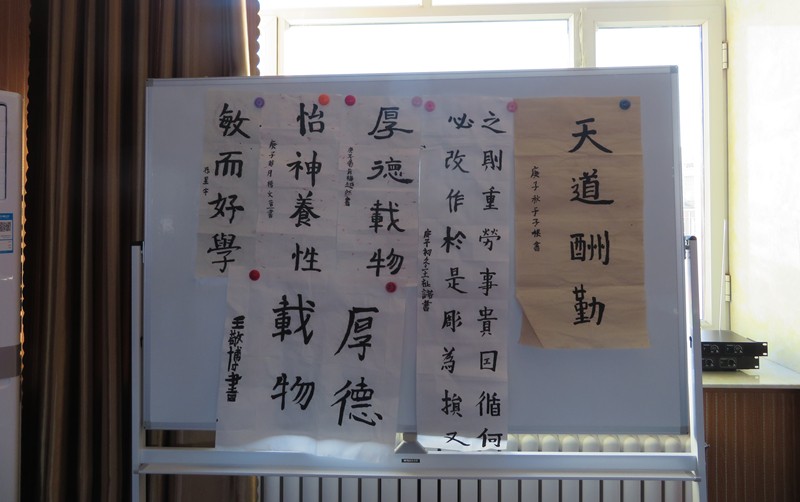 天道酬勤
庚子秋于子皓書
之則重勞事貴因循何
必改作於是彫為損又
庚子初冬王祉諾書
厚德載物
怡神養性
敏而好學
厚德
載物
王敬博書